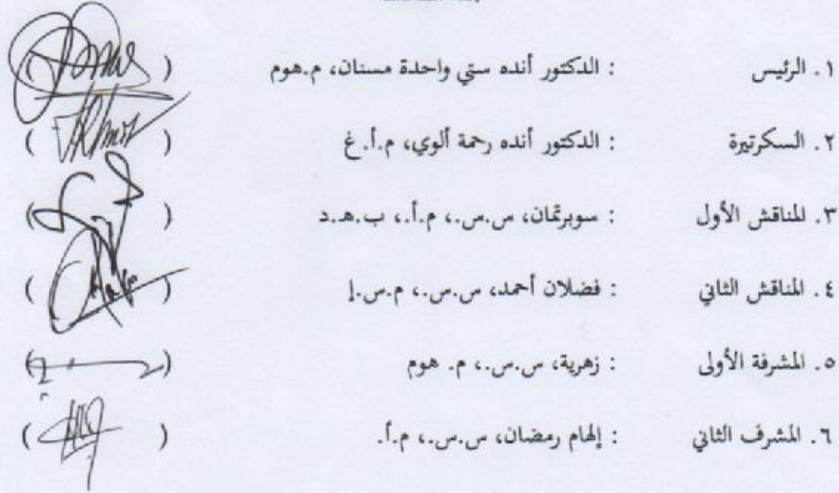 ١. الرئيس : الدكتور أنده ستي واحدة مسنان، م.هوم ( )
٢. السكرتيرة : الدكتور أنده رحمة ألوي، م.أ.غ ( )
٣. المناقش الأول : سوبرتمان، س.س.، م.أ.، ب.هـ.د ( )
٤. المناقش الثاني : فضلان أحمد، س.س.، م.س.إ ( )
٥. المشرفة الأولى : زهرية، س.س.، م. هوم ( )
٦. المشرف الثاني : إلهام رمضان، س.س.، م.أ. ( )